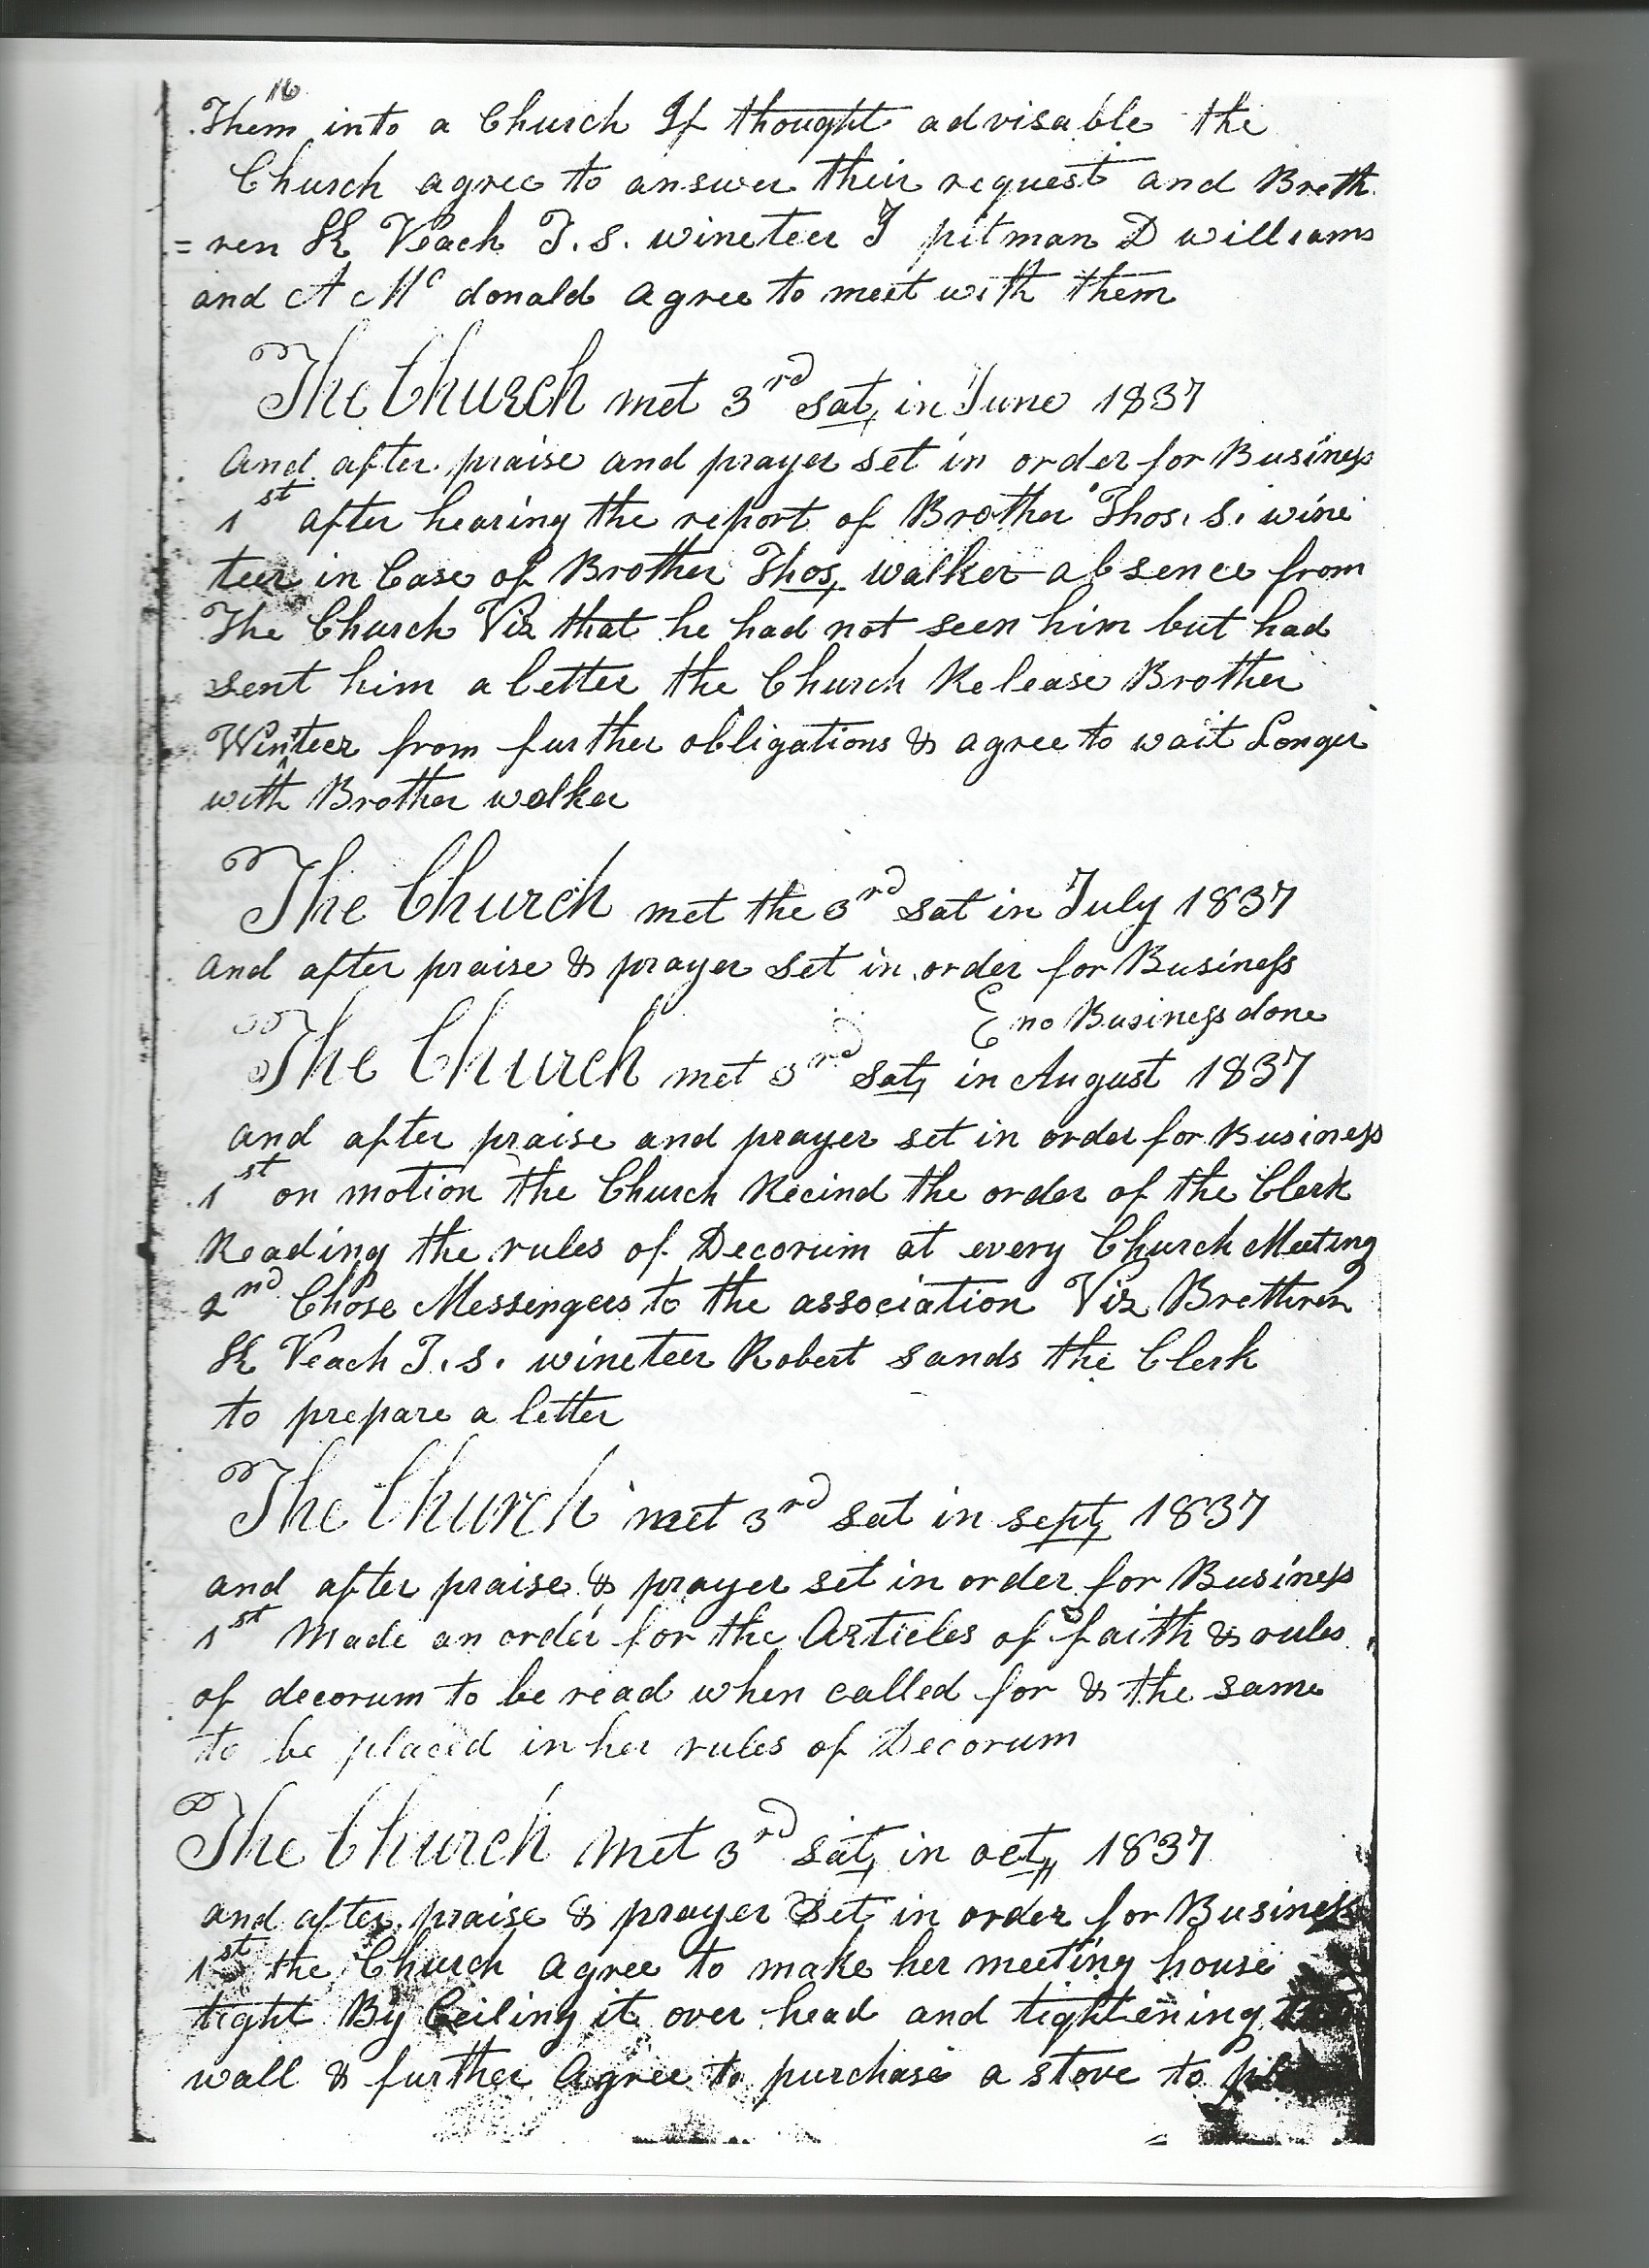 16
Them into a Church If thought advisable the
Church agree to answer their request and Breth
=ren K Veach T. S. wineteer J pitman D williams
and A Mc donald agree to meet with them
The Church met 3rd sat, in June 1837
And after praise and prayer set in order for Business
1st after hearing the report of Brother Thos. S. wine
teer in Case of Brother Thos, walker absence from
The Church Viz that he had not seen him but had
sent him a letter the Church Release Brother
Winteer from further obligations & agree to wait Longer
with Brother walker
The Church met the 3rd sat in July 1837
and after praise & prayer set in order for Business
no Business done
The Church met 3rd sat, in August 1837
and after praise and prayer set in order for Business
1st on motion the Church Recind the order of the Clerk
Reading the rules of Decorum at every Church Meeting
2nd Chose Messengers to the association Viz Brethren
K Veach T. S. wineteer Robert sands the Clerk
to prepare a letter
The Church met 3rd sat in sept, 1837
and after praise & prayer set in order for Business
1st Made an order for the Articles of faith & rules
of decorum to be read when called for & the same
to be placed in her rules of Decorum
The Church Met 3rd sat, in oct,, 1837
and after praise & prayer Set in order for Business
1st the Church agree to make her meeting house
tight By Ceiling it over head and tightening
wall & further Agree to purchase a stove to